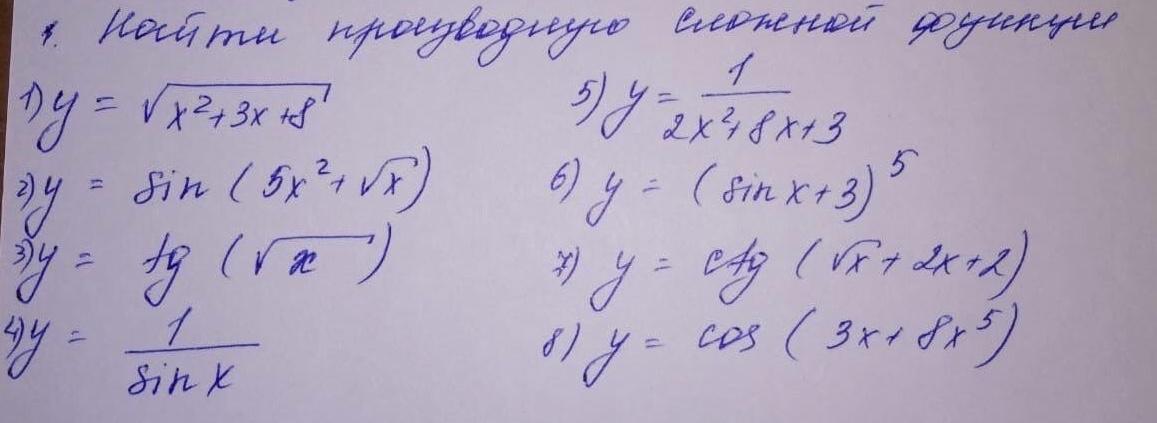 1. Найти производную сложной функции
1) y = √(x²+3x+8)
2) y = sin (5x²+√x)
3) y = tg (√x)
4) y = 1/sin x
5) y = 1/(2x²+8x+3)
6) y = (sin x+3)⁵
7) y = ctg (√x+2x+2)
8) y = cos (3x+8x⁵)